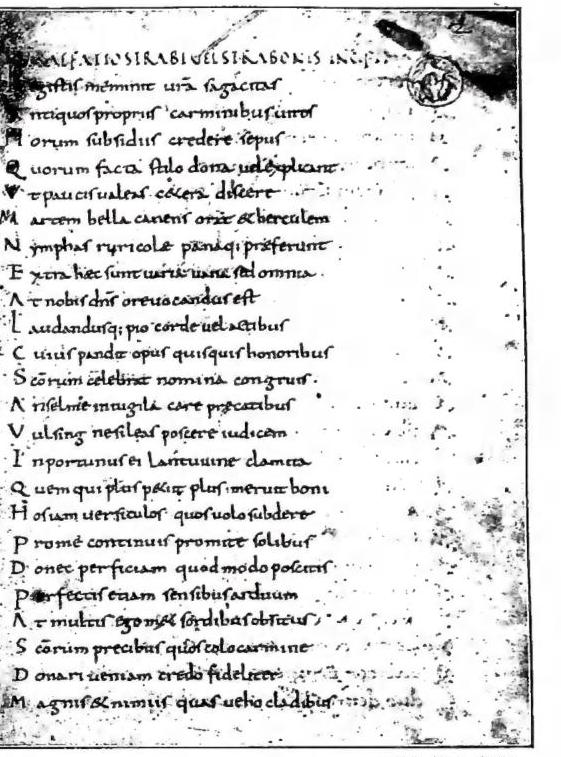 PRAEFATIO STRABI VEL STRABONIS INCP
egistis meminit urā sagacitas
Antiquos propriis carminibus uiros
Morum subsidiis credere sepus
Quorum facta stilo dona uel explicant.
Vt paucis ualeas cetera discere
Martem bella canens orat & herculem
Nymphas ruricolę panaq; preferunt
Extra hęc sunt uaria uana sed omnia.
At nobis dns̄ ore uocandus est
Laudandusq; pio corde uel actibus
Cuius pandit opus quisquis honoribus
Scōrum celebrat nomina congruis.
Anselme inuigila care pręcatibus
Vulsing ne sileas poscere iudicem
Inportunus ei clamita
Quem qui plus petiit plus meruit boni
Hos iam uersiculos quos uolo subdere
Prome continuis promite solibus
Donec perficiam quod modo poscitis
Perfectis etiam sensibus arduum
At multis egomet sordibus obsitus
Scōrum precibus quos colo carmine
Donari ueniam credo fideliter
Magnis & nimiis quas ueho cladibus